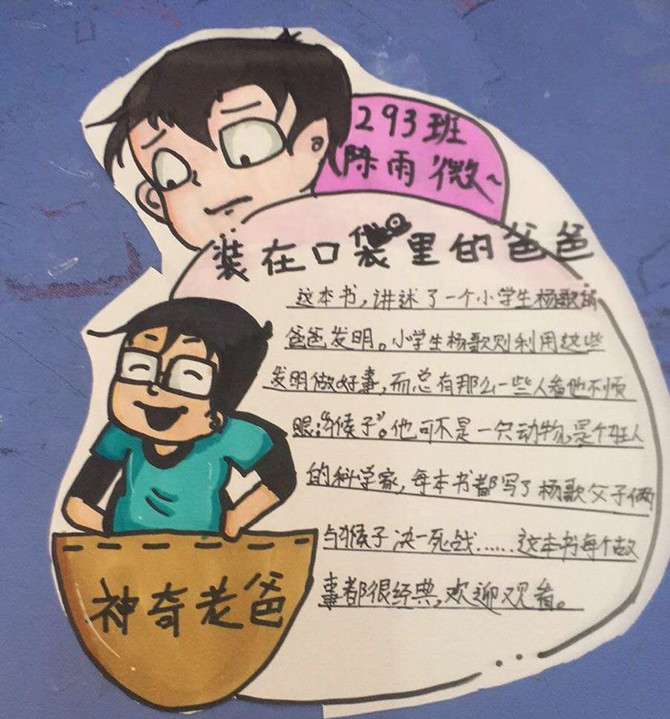 293班
陈雨微~
装在口袋里的爸爸
这本书,讲述了一个小学生杨歌的
爸爸发明。小学生杨歌则利用这些
发明做好事,而总有那么一些人看他不顺
眼:"猴子"。他可不是一只动物,是个狂人
的科学家,每本书都写了杨歌父子俩
与猴子决一死战……这本书每个故
事都很经典,欢迎观看。
神奇老爸